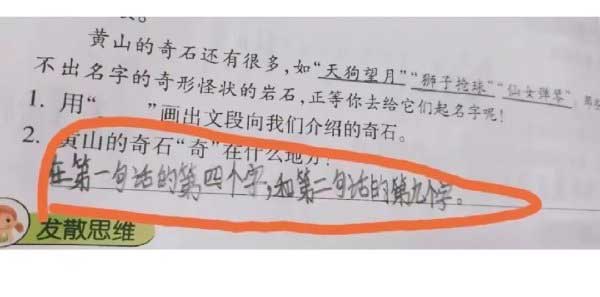 黄山的奇石还有很多,如“天狗望月”“狮子抢球”“仙女弹琴”,那些
不出名字的奇形怪状的岩石,正等你去给它们起名字呢!
1. 用“ ”画出文段向我们介绍的奇石。
2. 黄山的奇石“奇”在什么地方?
在第一句话的第四个字,和第二句话的第九个字。
发散思维